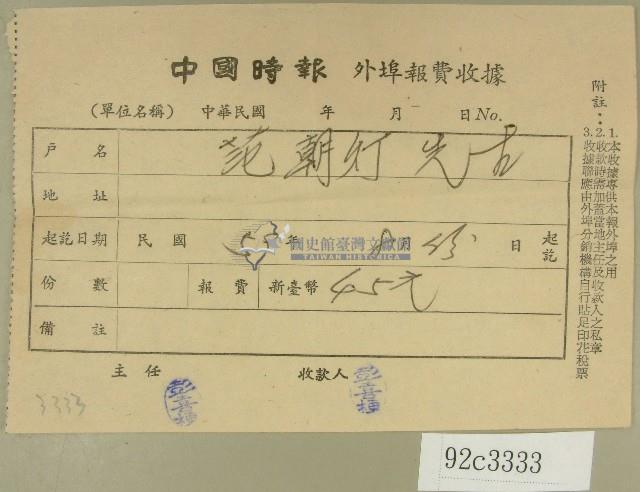 中國時報 外埠報費收據
(單位名稱) 中華民國 年 月 日No.
戶名 范朝灯先生
地址
起訖日期 民國 年 8月份 日 起訖
份數 報費 新臺幣 45元
備註
主任 收款人
彭喜梗 彭喜梗
附註：
1.本收據專供本報外埠之用
2.收款時需加蓋當地主任及收款人之私章
3.收據聯應由外埠分銷機構自行貼足印花稅票
國史館臺灣文獻館
TAIWAN HISTORICA
3333
92c3333